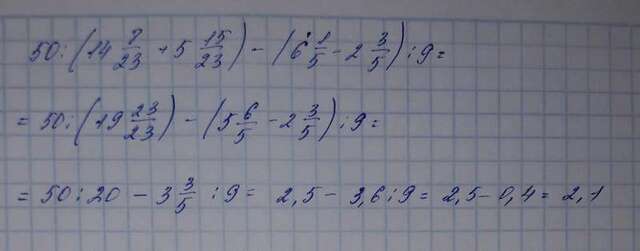 50 : (14 8/23 + 5 15/23) - (6 1/5 - 2 3/5) : 9 =
= 50 : (19 23/23) - (5 6/5 - 2 3/5) : 9 =
= 50 : 20 - 3 3/5 : 9 = 2,5 - 3,6 : 9 = 2,5 - 0,4 = 2,1